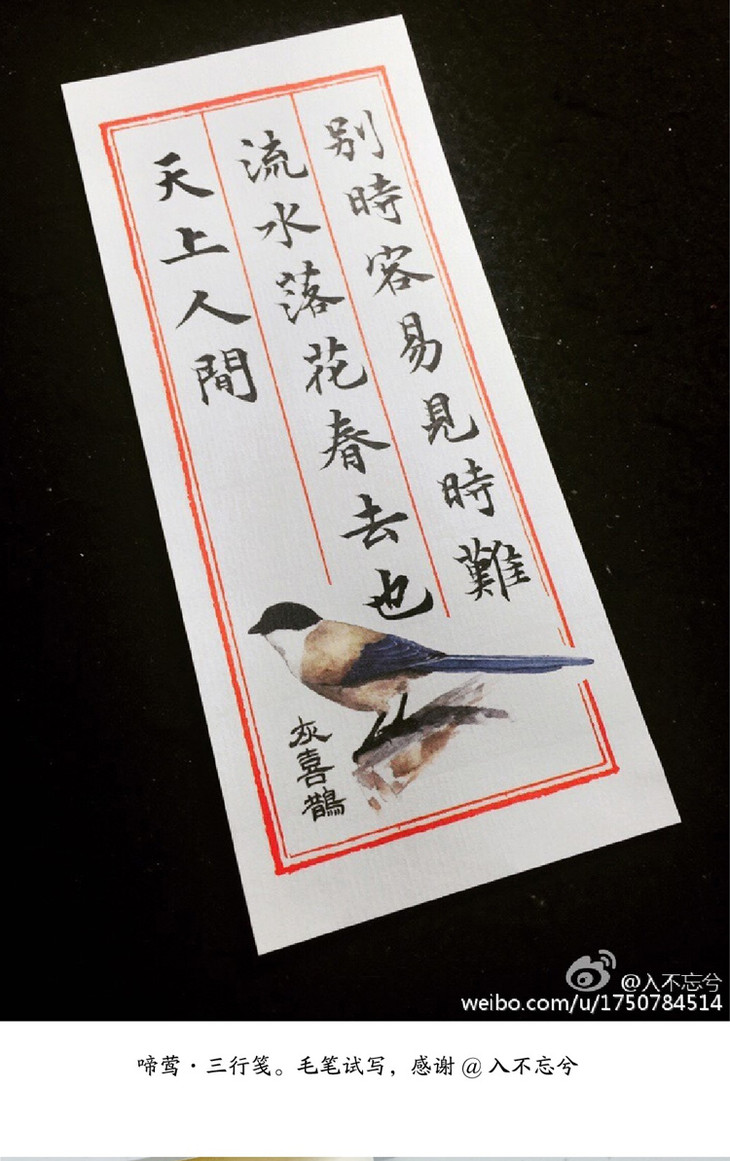 别時容易見時難
流水落花春去也
天上人間
灰喜鵲
@入不忘兮
weibo.com/u/1750784514
啼莺·三行笺。毛笔试写，感谢@入不忘兮